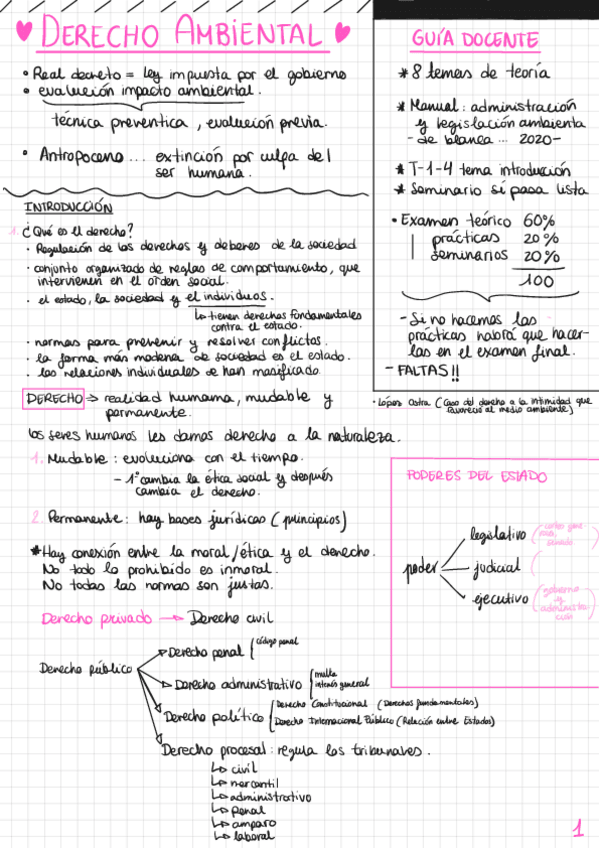 DERECHO AMBIENTAL
• Real decreto = ley impuesta por el gobierno
• evaluación impacto ambiental.
técnica preventica, evaluación previa.
• Antropoceno ... extinción por culpa del
ser humano.
GUÍA DOCENTE
* 8 temas de teoría
* Manual: administración
y legislación ambienta
- de blanca ... 2020-
* T-1-4 tema introducción
* Seminario si pasa lista
• Examen teórico 60%
prácticas 20%
seminarios 20%
100
- Si no hacemos las
prácticas habrá que hacer-
las en el examen final.
- FALTAS!!
• López Ostra (Caso del derecho a la intimidad que
favoreció al medio ambiente)
INTRODUCCIÓN
1. ¿Qué es el derecho?
• Regulación de los derechos y deberes de la sociedad
• conjunto organizado de reglas de comportamiento, que
intervienen en el orden social.
• el estado, la sociedad y el individuos.
↳ tienen derechos fundamentales
contra el estado.
• normas para prevenir y resolver conflictos.
• la forma más moderna de sociedad es el estado.
• las relaciones individuales se han masificado.
DERECHO → realidad humama, mudable y
permanente.
los seres humanos les damos derecho a la naturaleza.
1. Mudable: evoluciona con el tiempo.
- 1º cambia la ética social y después
cambia el derecho.
2. Permanente: hay bases jurídicas (principios)
* Hay conexión entre la moral/ética y el derecho.
No todo lo prohibido es inmoral.
No todas las normas son justas.
PODERES DEL ESTADO
poder
legislativo
judicial
ejecutivo (gobierno
y
administra
ción
Derecho privado → Derecho civil
Derecho público
Derecho penal [código penal
Derecho administrativo [multa
interés general
Derecho político [Derecho Constitucional (Derechos fundamentales)
Derecho Internacional Público (Relación entre Estados)
Derecho procesal: regula los tribunales.
↳ civil
↳ mercantil
↳ administrativo
↳ penal
↳ amparo
↳ laboral
1